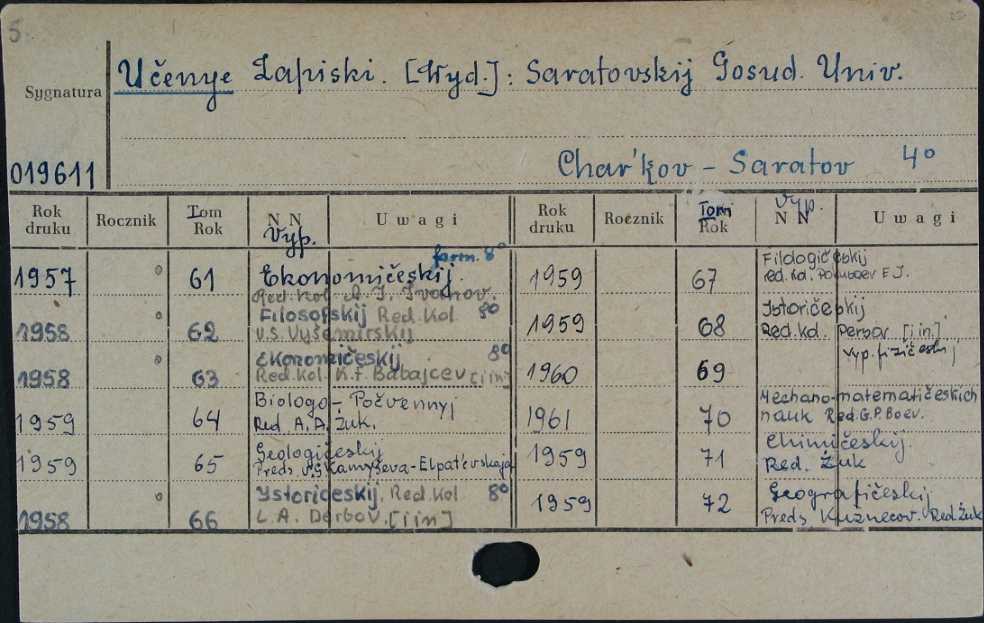 5.
Sygnatura
Učenye Zapiski. [Wyd.]: Saratovskij Gosud. Univ.
019611
Char'kov - Saratov 4°
Rok druku
Rocznik
Tom Rok
N N Vyp.
Uwagi
Rok druku
Rocznik
Tom Rok
Vyp. N N
Uwagi
form. 8°
1957 61 Ekonomičeskij.
Red. Kol.
1958 62 Filosofskij Red. Kol 8°
V.S. Vyšemirskij
1958 63 Ekonomičeskij 8°
Red. Kol. K.F. Babajcev [i in]
1959 64 Biologo - Počvennyj
Red A. A. Žuk.
1959 65 Geologičeskij
Preds V.G. Kamyševa-Elpat'evskaja
1958 66 Istoričeskij. Red. Kol 8°
L. A. Derbov. [i in]
1959 67 Filologičeskij
Red. Kol.
1959 68 Istoričeskij
Red. Kol. Derbov [i in.]
1960 69 Vyp. fizičeskij
1961 70 Mechano-matematičeskich
nauk Red. G.P. Boev.
1959 71 Chimičeskij.
Red. Žuk
1959 72 Geografičeskij
Preds Kuznecov. Red. Žuk